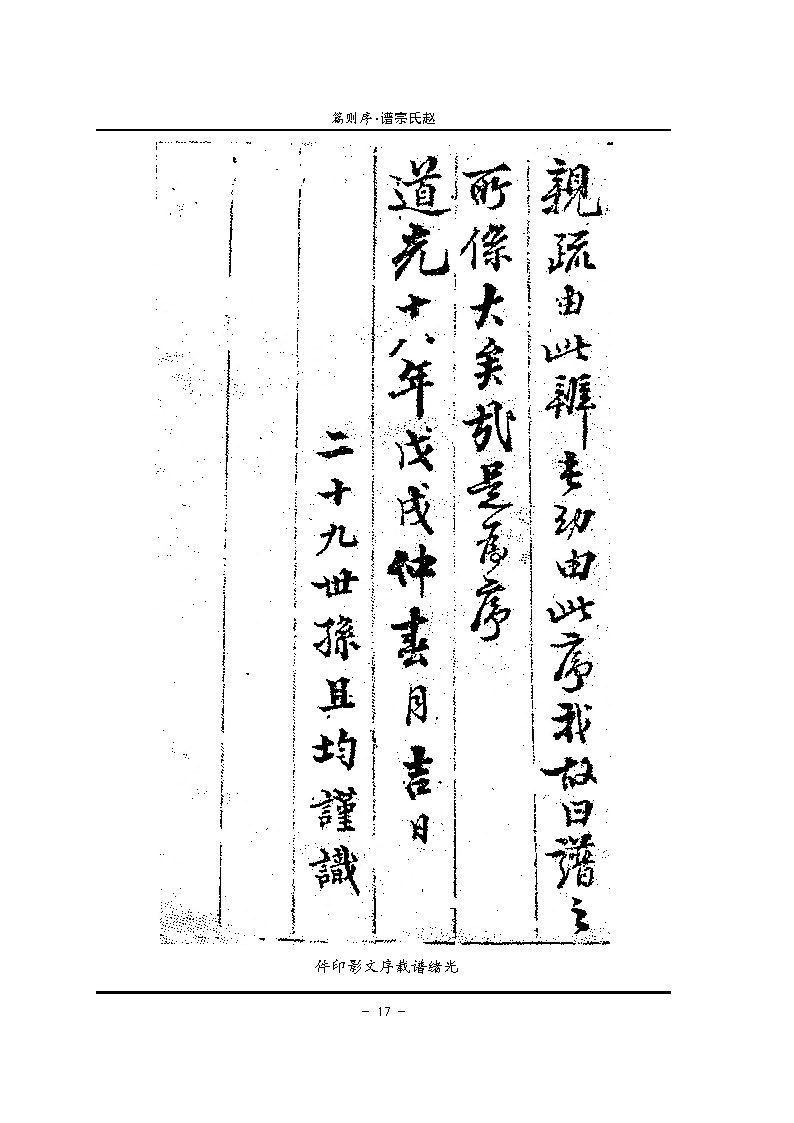 赵氏宗谱·序则篇
親疏由此辨長幼由此序我故曰譜之
所係大矣哉是為序
道光十八年戊戌仲春月吉日
二十九世孫且均謹識
光绪谱载序文影印件
- 17 -